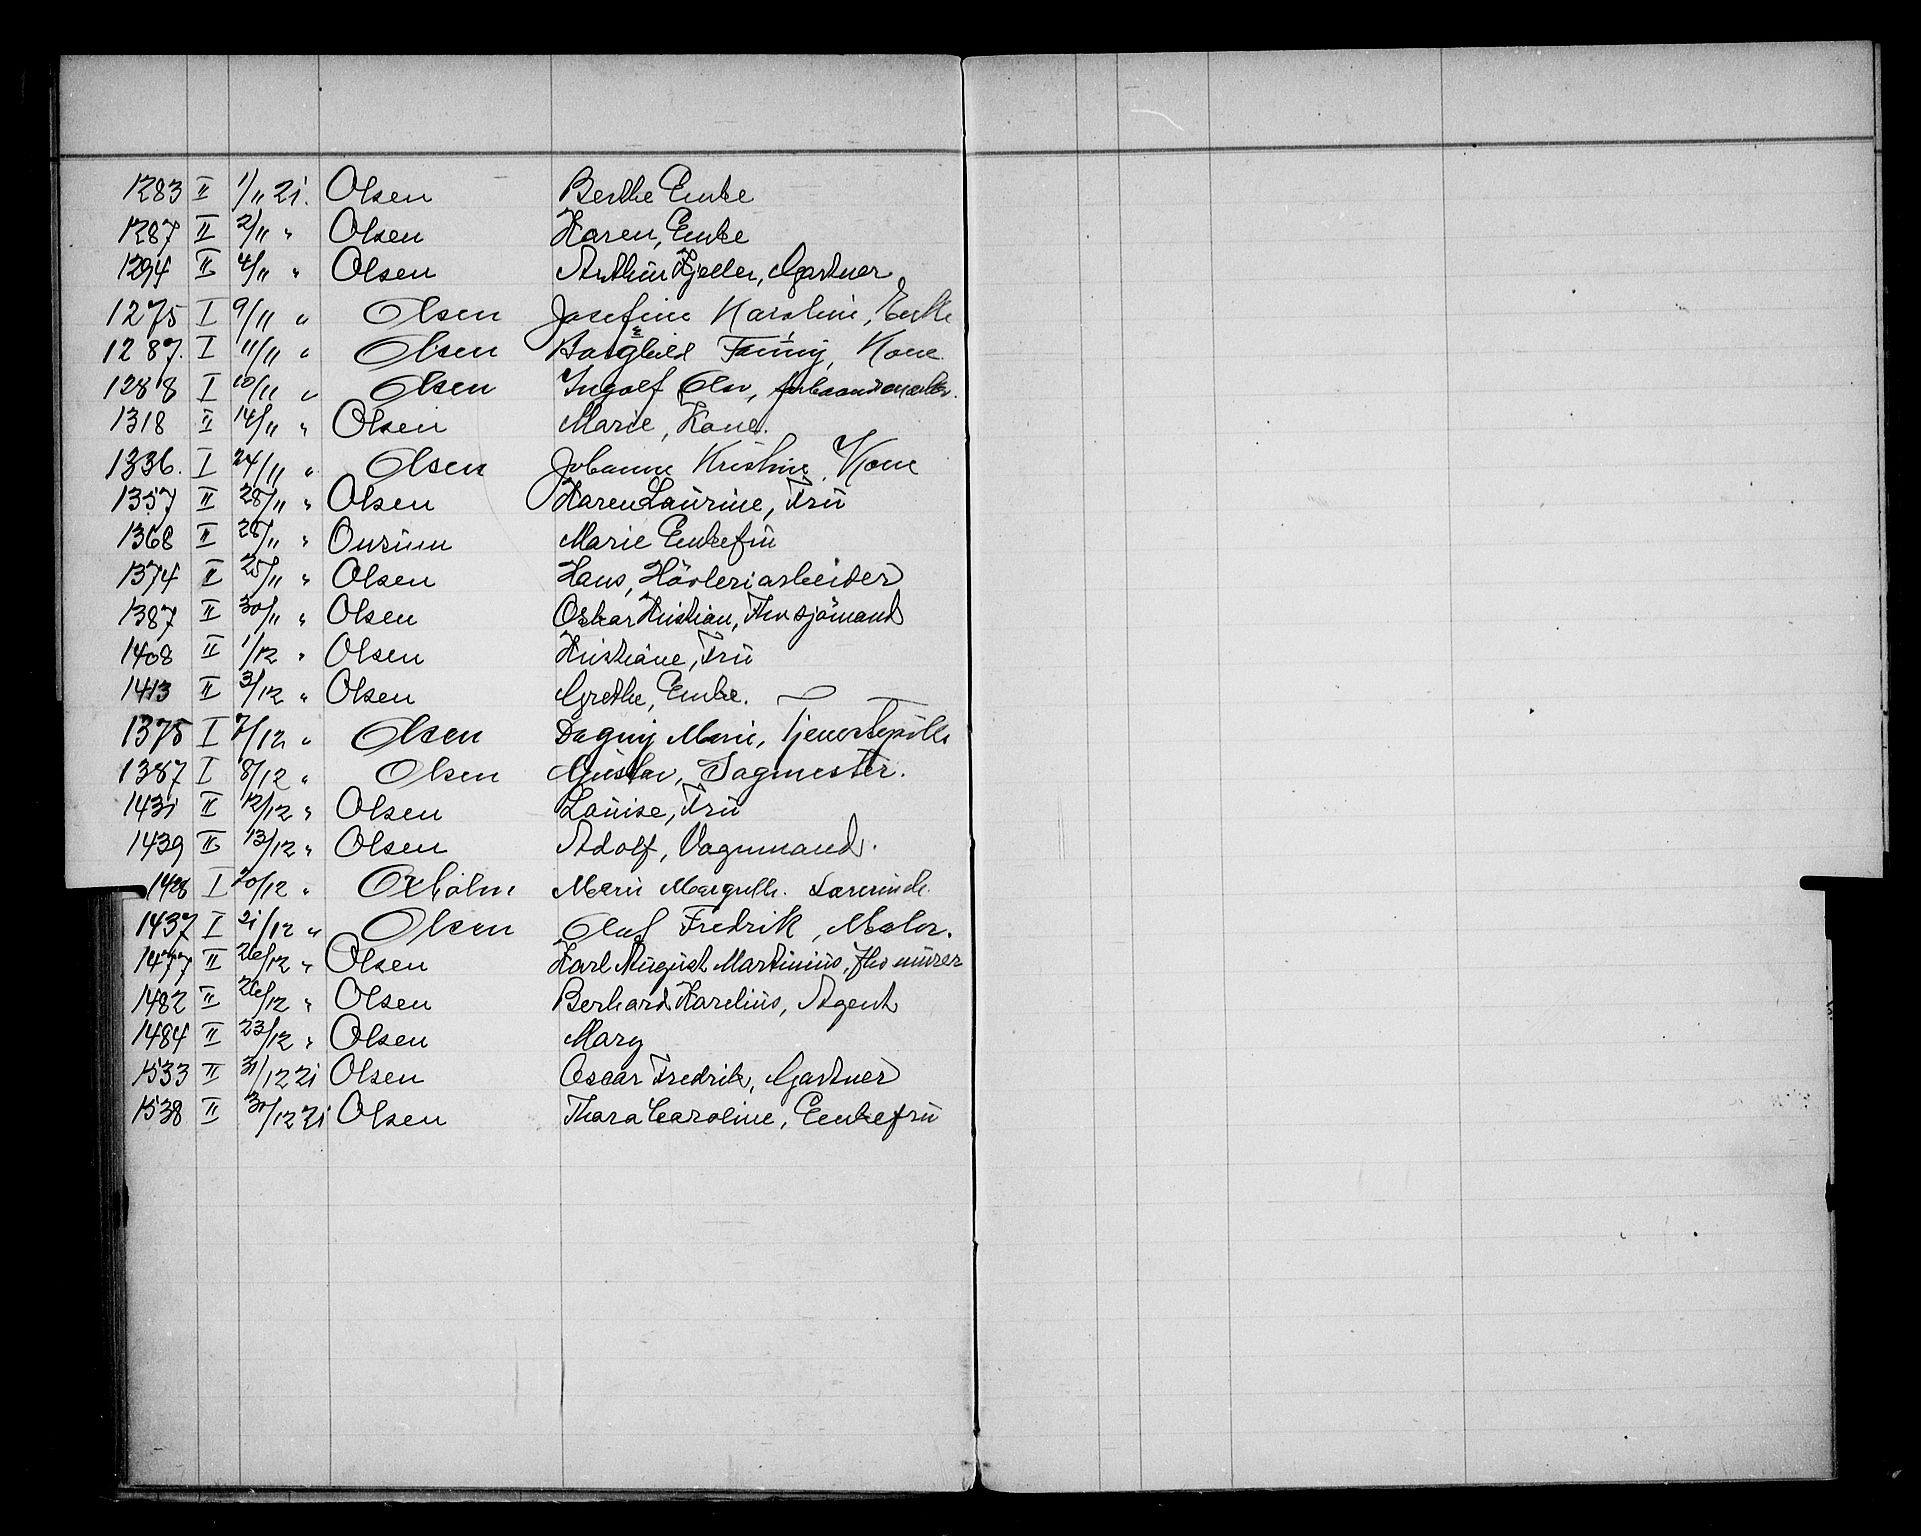 1283 II 1/11 21. Olsen Berthe Enke
1287 II 2/11 " Olsen Karen, Enke
1294 II 4/11 " Olsen Arthur Kjeller, Gartner
1275 I 9/11 " Olsen Josefine Karoline, Enke
1287. I 11/11 " Olsen Borghild Fanny, Kone.
1288 I 10/11 " Olsen Ingolf Olav,
1318 II 14/11 " Olsen Marie, Kone.
1336. I 24/11 " Olsen Johanne Kristine, Kone
1357 II 28/11 " Olsen Karen Laurine, Fru
1368 II 28/11 " Onsum Marie Enkefru
1374 II 25/11 " Olsen Hans, Høvleriarbeider
1387 II 30/11 " Olsen Oskar Kristian, Fhv sjømand
1408 II 1/12 " Olsen Kristiane, Fru
1413 II 3/12 " Olsen Grethe, Enke.
1375 I 7/12 " Olsen Dagny Marie, Tjenestepike
1387 I 8/12 " Olsen Gustav, Sagmester.
1431 II 12/12 " Olsen Louise, Fru
1439 II 13/12 " Olsen Adolf, Vognmand.
1428 I 20/12 " Oxholm Marie Margrethe. Lærerinde.
1437 I 21/12 " Olsen Oluf Fredrik, Maler.
1477 II 26/12 " Olsen Karl August Martinius, fhv murer
1482 II 26/12 " Olsen Berhard Karelius, Agent
1484 II 23/12 " Olsen Mary
1533 II 31/12 21 Olsen Oscar Fredrik, Gartner
1538 II 30/12 21 Olsen Thara Caroline, Enkefru